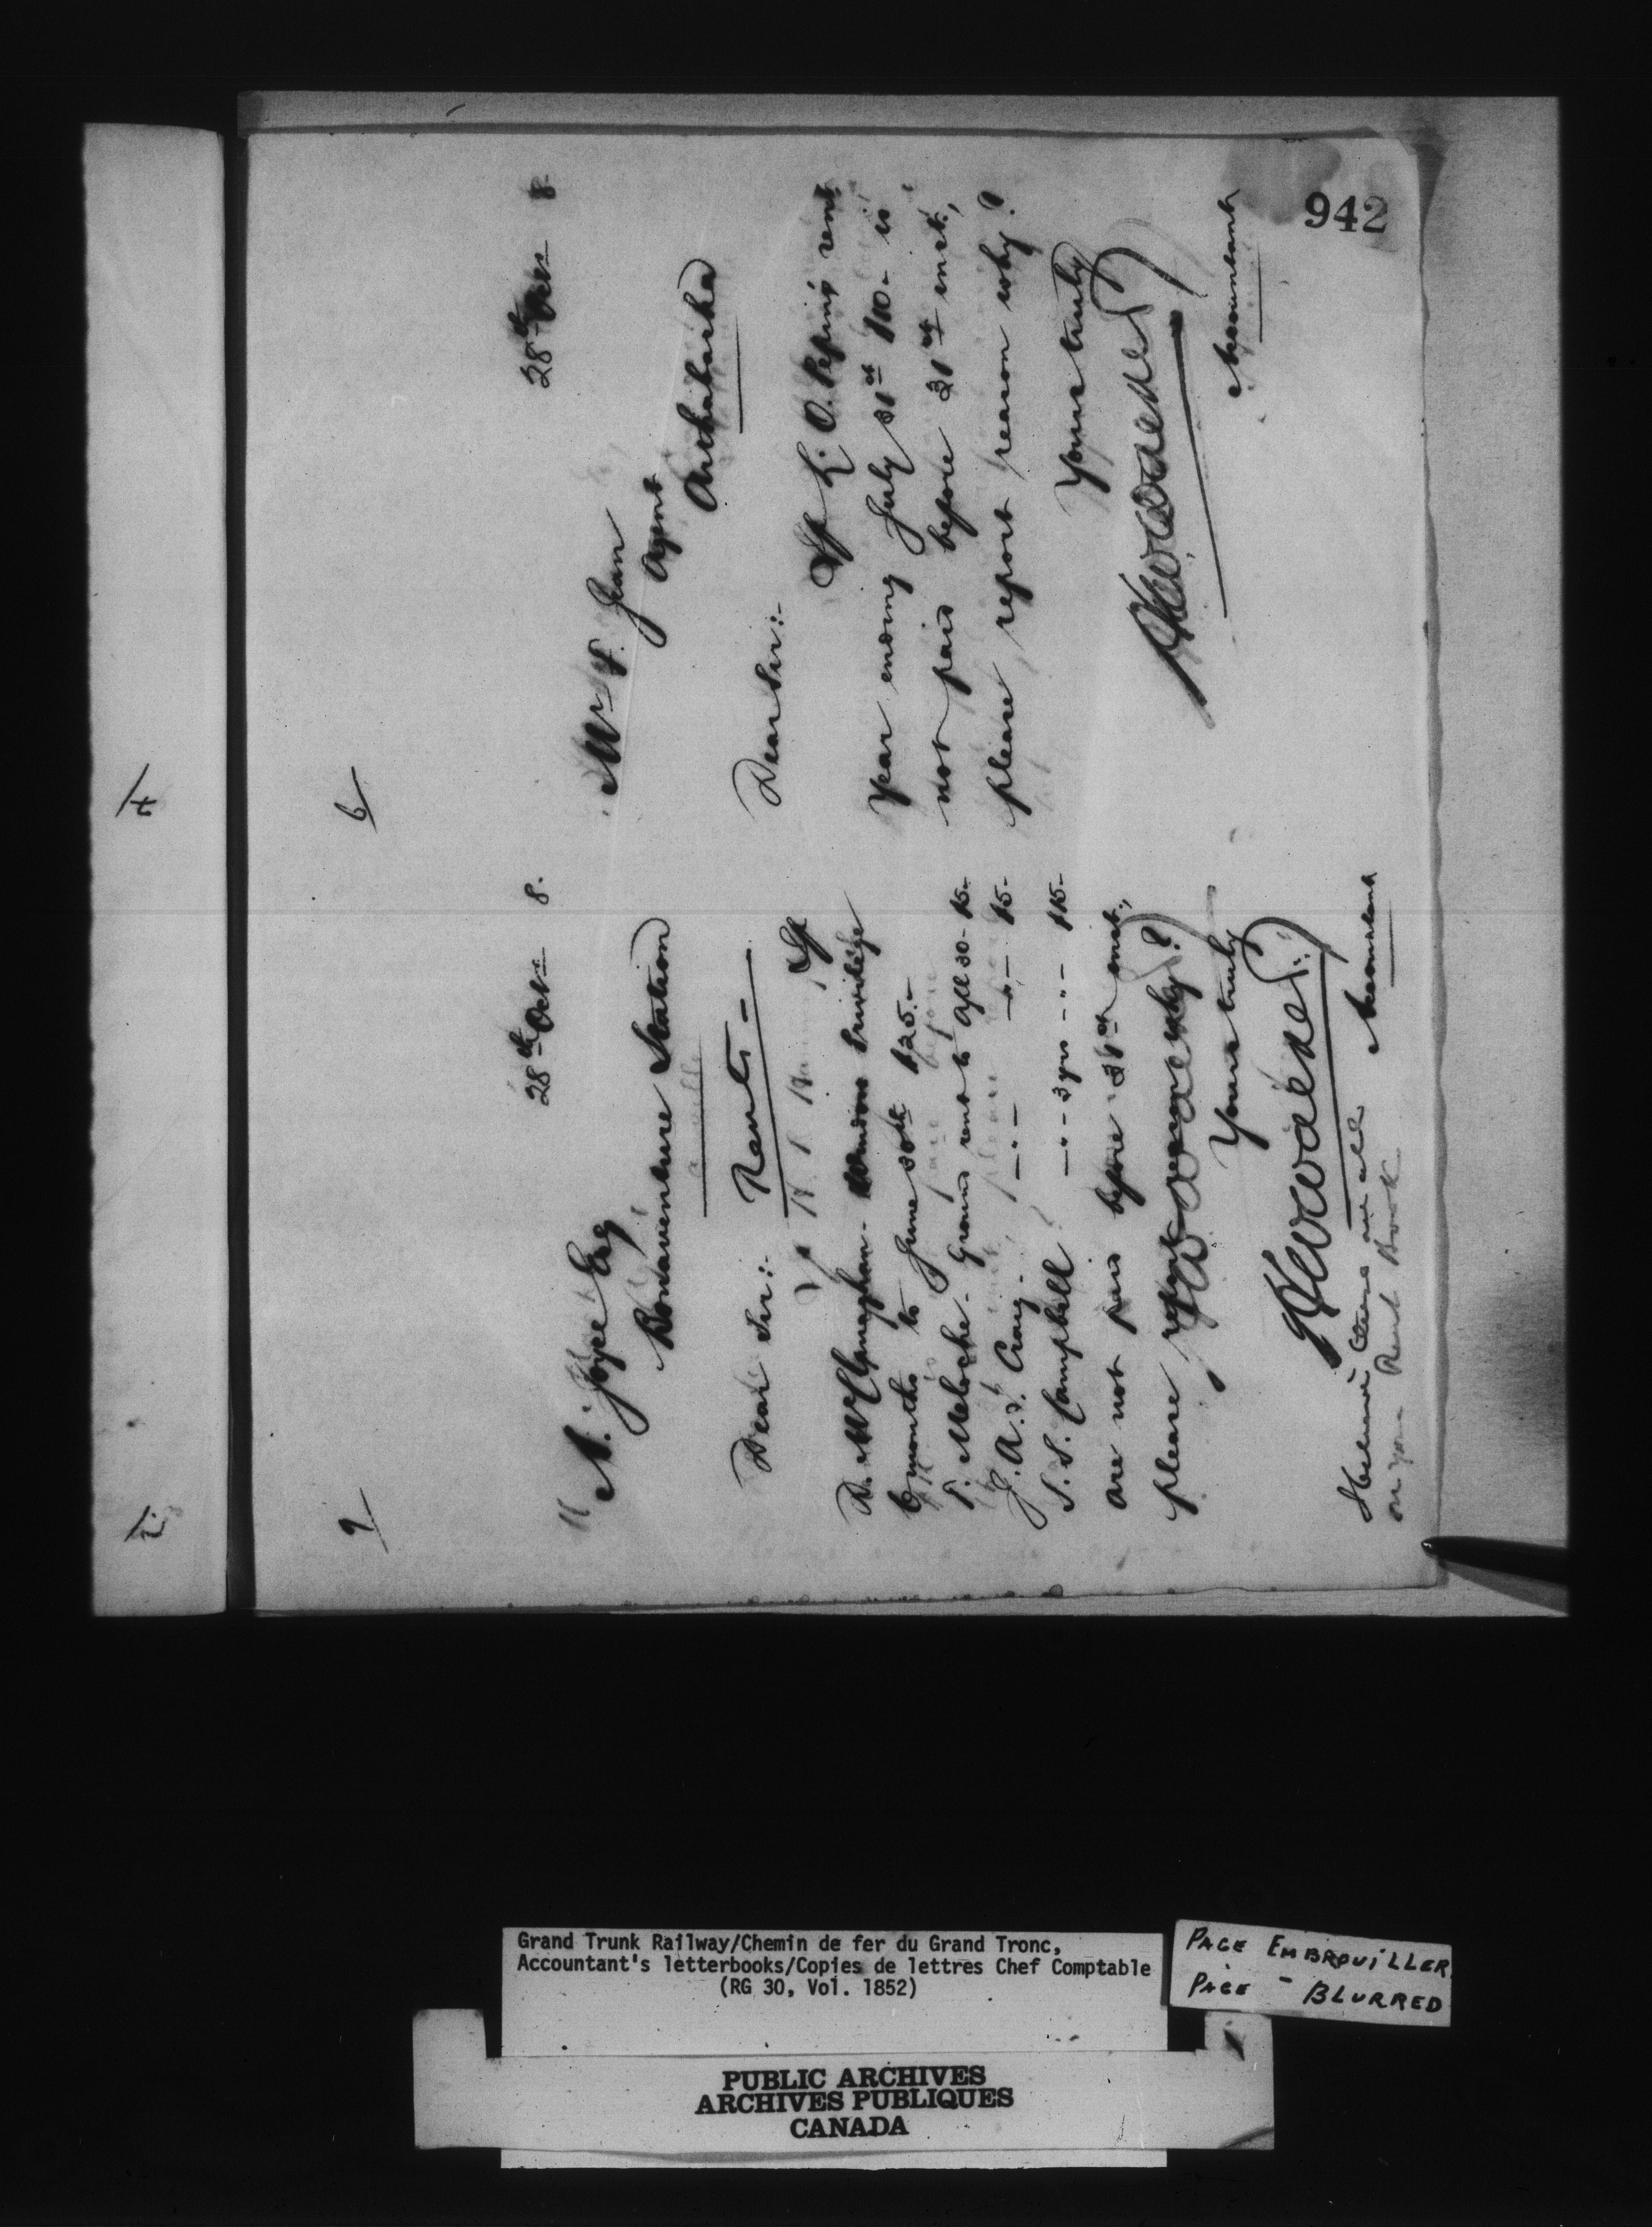 942
9/
28th Octr 8.
A. Joyce Esq
Bonaventure Station
Rents
Dear Sir:-
If
D. McClanaghan Privilege
6 months to June 30th $25.-
P. Meloche. Ground rent to Apl 30- 15.-
J. A. J. Craig - " - - " - 15-
S. S. Campbell - " - 3 yrs - " - 115-
are not paid before 31st inst.,
please report reason why?
Yours truly
Accountant
on your Rent Book
6/
28th Octr 8.
Mr P. Jean
Agent
Arthabaska
Dear Sir:-
If L. O. Pepins rent
year ending July 31st $10- is
not paid before 31st inst,
please report reason why?
Yours truly
Accountant
Grand Trunk Railway/Chemin de fer du Grand Tronc,
Accountant's letterbooks/Copies de lettres Chef Comptable
(RG 30, Vol. 1852)
PAGE EMBROUILLER
PAGE - BLURRED
PUBLIC ARCHIVES
ARCHIVES PUBLIQUES
CANADA